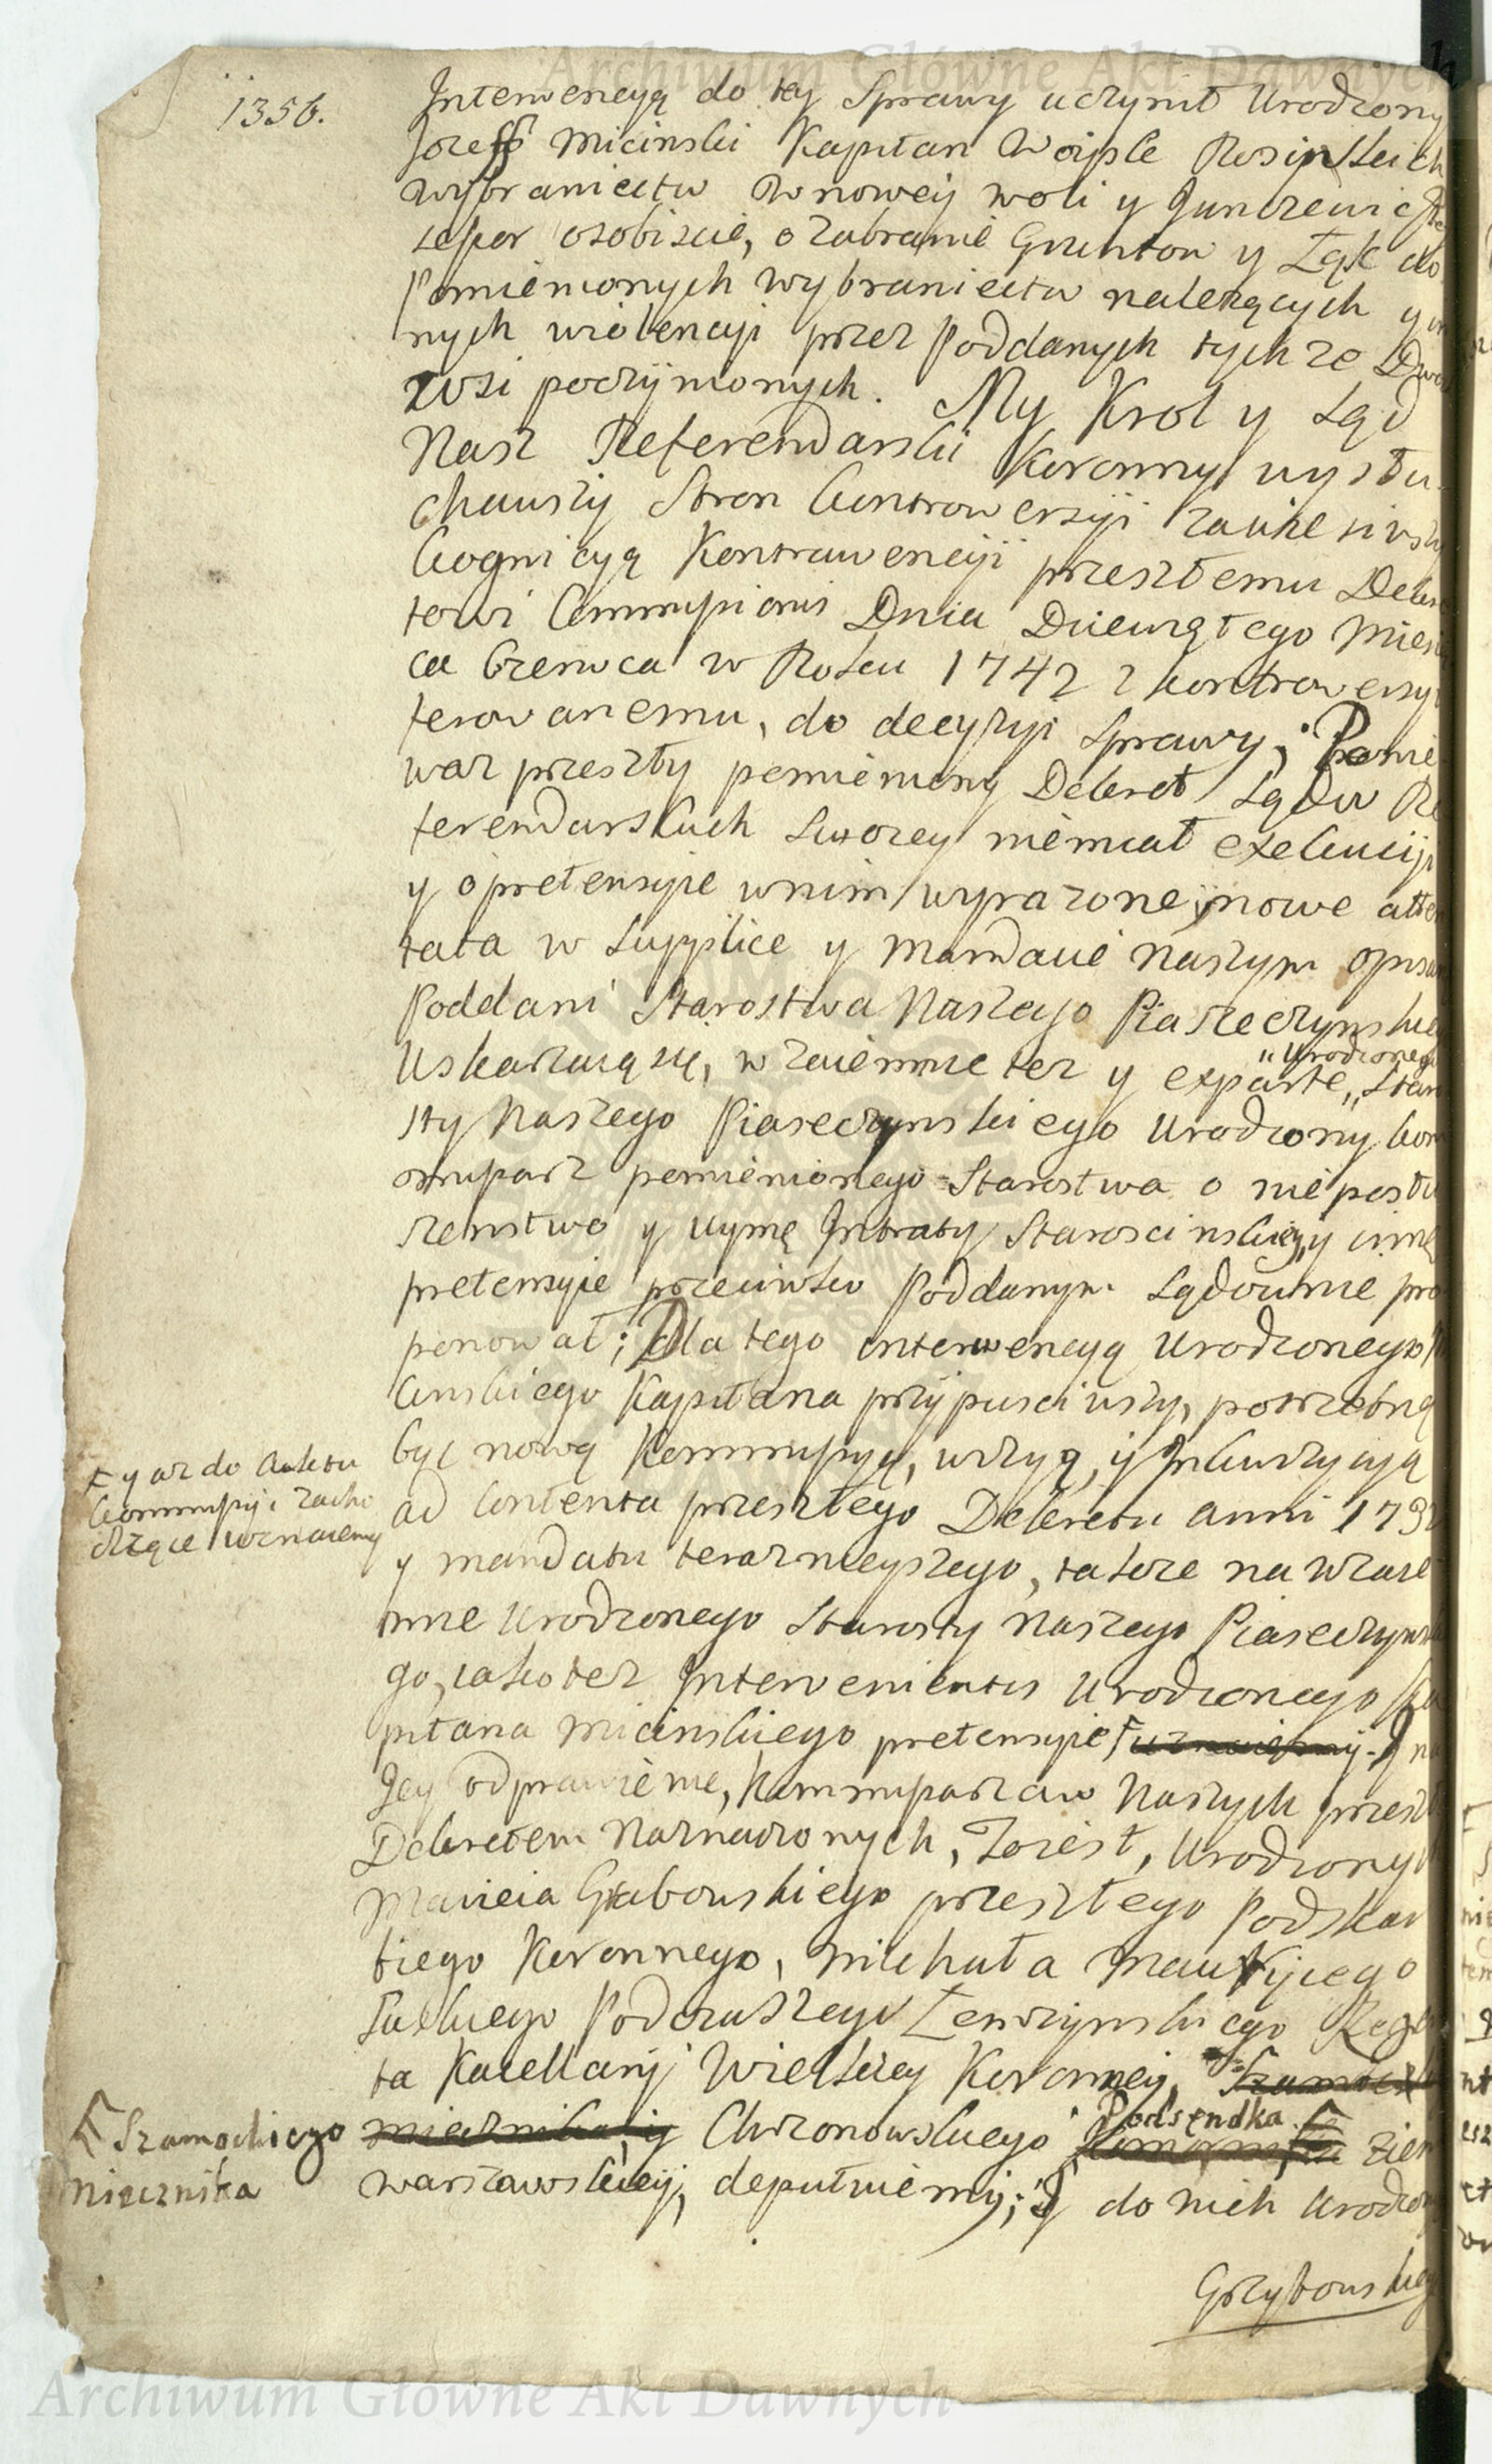 Archiwum Główne Akt Dawnych
1356.
Interwencyą do tey Sprawy uczynił Urodzony
Jozeff Micinski Kapitan Woiska
Wybraniectw w nowey woli y
osobiscie, o zabranie Gruntow y Łąk do
Pomienionych wybraniectw nalezących y
nych wiolencyi przez Poddanych tychze
wsi poczynionych. My Krol y Sąd
Nasz Referendarski Koronny wysłu
chawszy Stron Controwersyi
Cognicyą Kontrawencyi przeszłemu Dekre
towi Commissionis Dnia Dziewiątego Miesią
ca Czerwca w Roku 1742 z kontrowersyi
ferowanemu, do decyzyi sprawy; Ponie
waz przeszły pomieniony Dekret Sądow Re
ferendarskich swoiey niemiał exekucyi
y o pretensyie w nim wyrazone, y nowe atten
tata w Supplice y Mandacie Naszym opisa
Poddani Starostwa Naszego Piaseczynskie
Uskarzaią się, wzaiemnie tez y exparte „ Staro
„ Urodzonego
sty Naszego Piaseczynskiego Urodzony Com
missarz pomienionego Starostwa o nieposłu
szenstwo y uymę Intraty Staroscinskiey, y inne
pretensyie przeciwko Poddanym Sądownie pro
ponował; Dla tego interwencyą Urodzonego Mi
cinskiego Kapitana przypusciwszy, potrzebną
być nową Kommissyą, wizyą, y Inkwizycyą
ad Contenta przeszłego Dekretu Anni
y mandatu teraznieyszego, takze na wzaie
mne Urodzonego Starosty Naszego Piaseczynskie
go, iako tez Intervenientis Urodzonego Ka
pitana Micinskiego pretensyie Ⱶ uznaiemy. I na
Jey odprawienie, Kommissarzow Naszych przeszł
Dekretem Naznaczonych, To iest, Urodzonych
Macieia Grabowskiego przeszłego Podskar
biego Koronnego, Michała
Podczaszego Łenczynskiego Regen
ta Kacellaryi Wielkiey Koronney,
miecznika, y Chrzonowskiego Podsendka ziem
warszawskiey, deputuiemy; I do nich Urodzon
Grzybowskieg
Ⱶ y az do Aktu
Commissyi zacho
dzące uznaiemy
Ⱶ Szamockiego
Miecznika
Archiwum Główne Akt Dawnych